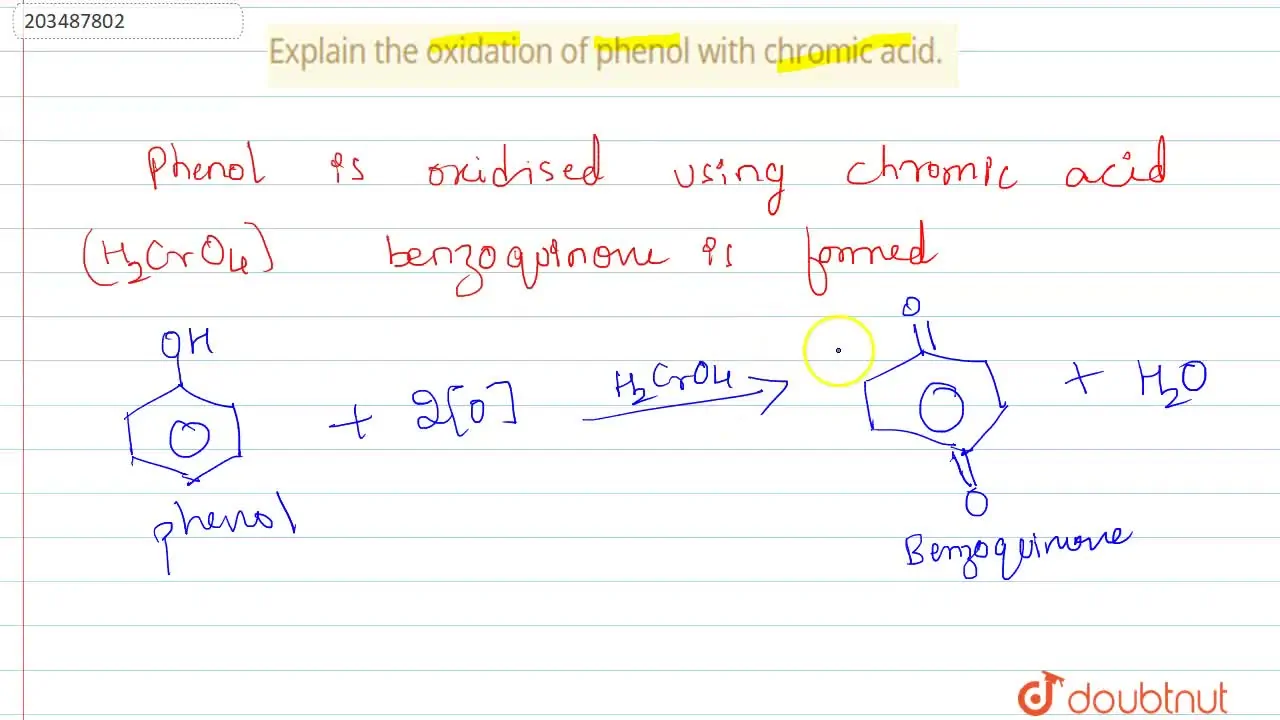 203487802
Explain the oxidation of phenol with chromic acid.
Phenol is oxidised using chromic acid
(H2CrO4) benzoquinone is formed
OH
+ 2[O] H2CrO4 O + H2O
O
phenol
Benzoquinone
doubtnut